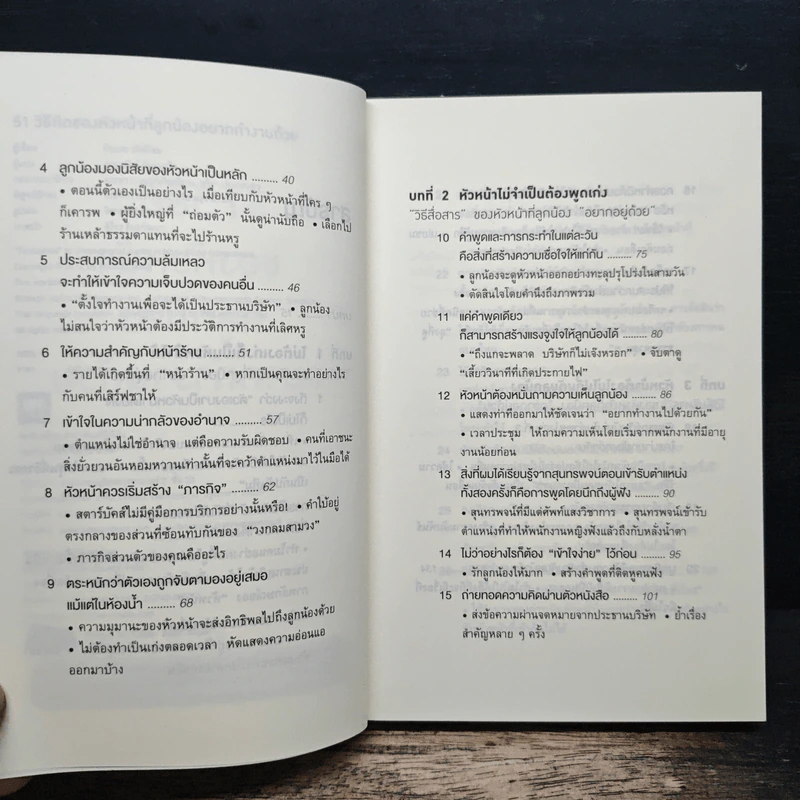 4 ลูกน้องมองนิสัยของหัวหน้าเป็นหลัก ......... 40
• ตอนนี้ตัวเองเป็นอย่างไร เมื่อเทียบกับหัวหน้าที่ใคร ๆ
ก็เคารพ • ผู้ยิ่งใหญ่ที่ “ถ่อมตัว” นั้นดูน่านับถือ • เลือกไป
ร้านเหล้าธรรมดาแทนที่จะไปร้านหรู
5 ประสบการณ์ความล้มเหลว
จะทำให้เข้าใจความเจ็บปวดของคนอื่น ......... 46
• “ตั้งใจทำงานเพื่อจะได้เป็นประธานบริษัท” • ลูกน้อง
ไม่สนใจว่าหัวหน้าต้องมีประวัติการทำงานที่เลิศหรู
6 ให้ความสำคัญกับหน้าร้าน ......... 51
• รายได้เกิดขึ้นที่ “หน้าร้าน” • หากเป็นคุณจะทำอย่างไร
กับคนที่เสิร์ฟชาให้
7 เข้าใจในความน่ากลัวของอำนาจ ......... 57
• ตำแหน่งไม่ใช่อำนาจ แต่คือความรับผิดชอบ • คนที่เอาชนะ
สิ่งยั่วยวนอันหอมหวานเท่านั้นที่จะคว้าตำแหน่งมาไว้ในมือได้
8 หัวหน้าควรเริ่มสร้าง “ภารกิจ” ......... 62
• สตาร์บัคส์ไม่มีคู่มือการบริการอย่างนั้นหรือ! • คำใบ้อยู่
ตรงกลางของส่วนที่ซ้อนทับกันของ “วงกลมสามวง”
• ภารกิจส่วนตัวของคุณคืออะไร
9 ตระหนักว่าตัวเองถูกจับตามองอยู่เสมอ
แม้แต่ในห้องน้ำ ......... 68
• ความมุมานะของหัวหน้าจะส่งอิทธิพลไปถึงลูกน้องด้วย
• ไม่ต้องทำเป็นเก่งตลอดเวลา หัดแสดงความอ่อนแอ
ออกมาบ้าง
บทที่ 2 หัวหน้าไม่จำเป็นต้องพูดเก่ง
“วิธีสื่อสาร” ของหัวหน้าที่ลูกน้อง “อยากอยู่ด้วย”
10 คำพูดและการกระทำในแต่ละวัน
คือสิ่งที่สร้างความเชื่อใจให้แก่กัน ......... 75
• ลูกน้องจะดูหัวหน้าออกอย่างทะลุปรุโปร่งในสามวัน
• ตัดสินใจโดยคำนึงถึงภาพรวม
11 แค่คำพูดเดียว
ก็สามารถสร้างแรงจูงใจให้ลูกน้องได้ ......... 80
• “ถึงแกจะพลาด บริษัทก็ไม่เจ๊งหรอก” • จับตาดู
“เสี้ยววินาทีที่เกิดประกายไฟ”
12 หัวหน้าต้องหมั่นถามความเห็นลูกน้อง ......... 86
• แสดงท่าทีออกมาให้ชัดเจนว่า “อยากทำงานไปด้วยกัน”
• เวลาประชุม ให้ถามความเห็นโดยเริ่มจากพนักงานที่มีอายุ
งานน้อยก่อน
13 สิ่งที่ผมได้เรียนรู้จากสุนทรพจน์ตอนเข้ารับตำแหน่ง
ทั้งสองครั้งก็คือการพูดโดยนึกถึงผู้ฟัง ......... 90
• สุนทรพจน์ที่มีแต่ศัพท์แสงวิชาการ • สุนทรพจน์เข้ารับ
ตำแหน่งที่ทำให้พนักงานหญิงฟังแล้วถึงกับหลั่งน้ำตา
14 ไม่ว่าอย่างไรก็ต้อง “เข้าใจง่าย” ไว้ก่อน ......... 95
• รักลูกน้องให้มาก • สร้างคำพูดที่ติดหูคนฟัง
15 ถ่ายทอดความคิดผ่านตัวหนังสือ ......... 101
• ส่งข้อความผ่านจดหมายจากประธานบริษัท • ย้ำเรื่อง
สำคัญหลาย ๆ ครั้ง